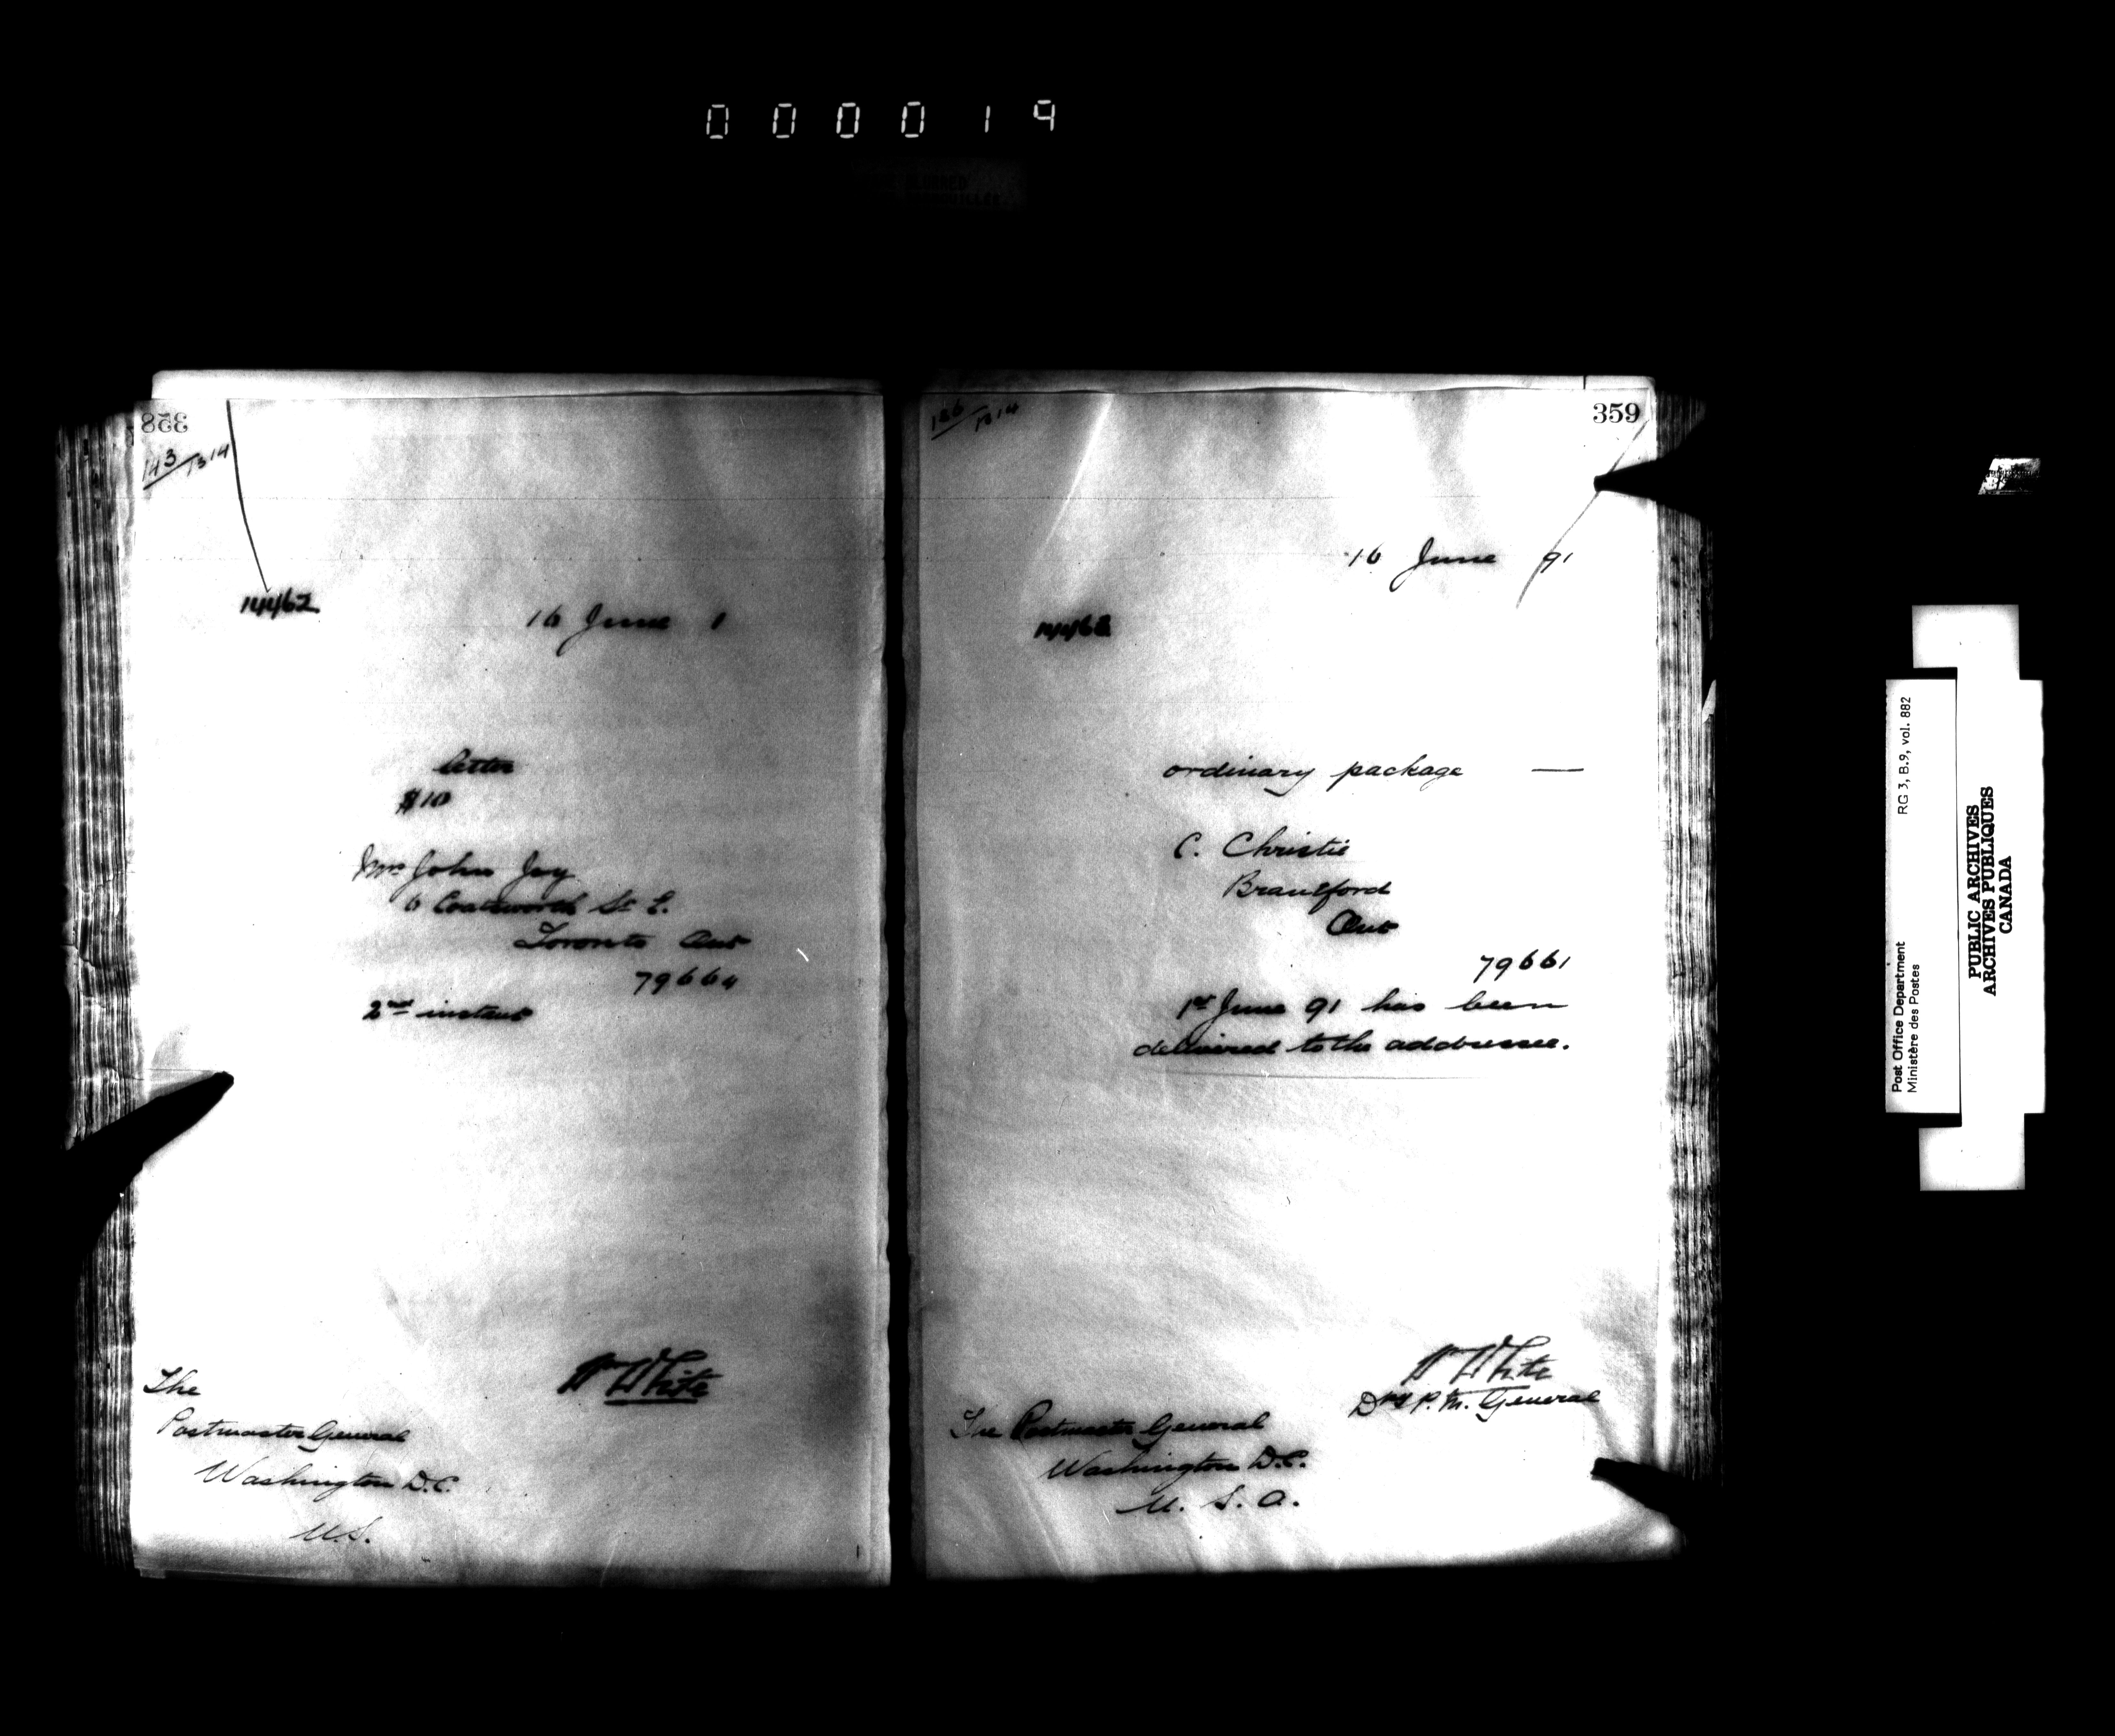 000019
358
143/1314
14462
16 June 1
letter
$10
Mrs John Joy
6 Coatsworth St E.
Toronto Ont
79664
2nd instant
Wm White
The
Postmaster General
Washington D.C.
U.S.
186/1314
359
16 June 91
14463
ordinary package —
C. Christie
Brantford
Ont
79661
1st June 91 has been
delivered to the addressee.
Wm White
Dpy P. M. General
The Postmaster General
Washington D.C.
U. S. A.
Post Office Department
Ministère des Postes
RG 3, B.9, vol. 882
PUBLIC ARCHIVES
ARCHIVES PUBLIQUES
CANADA